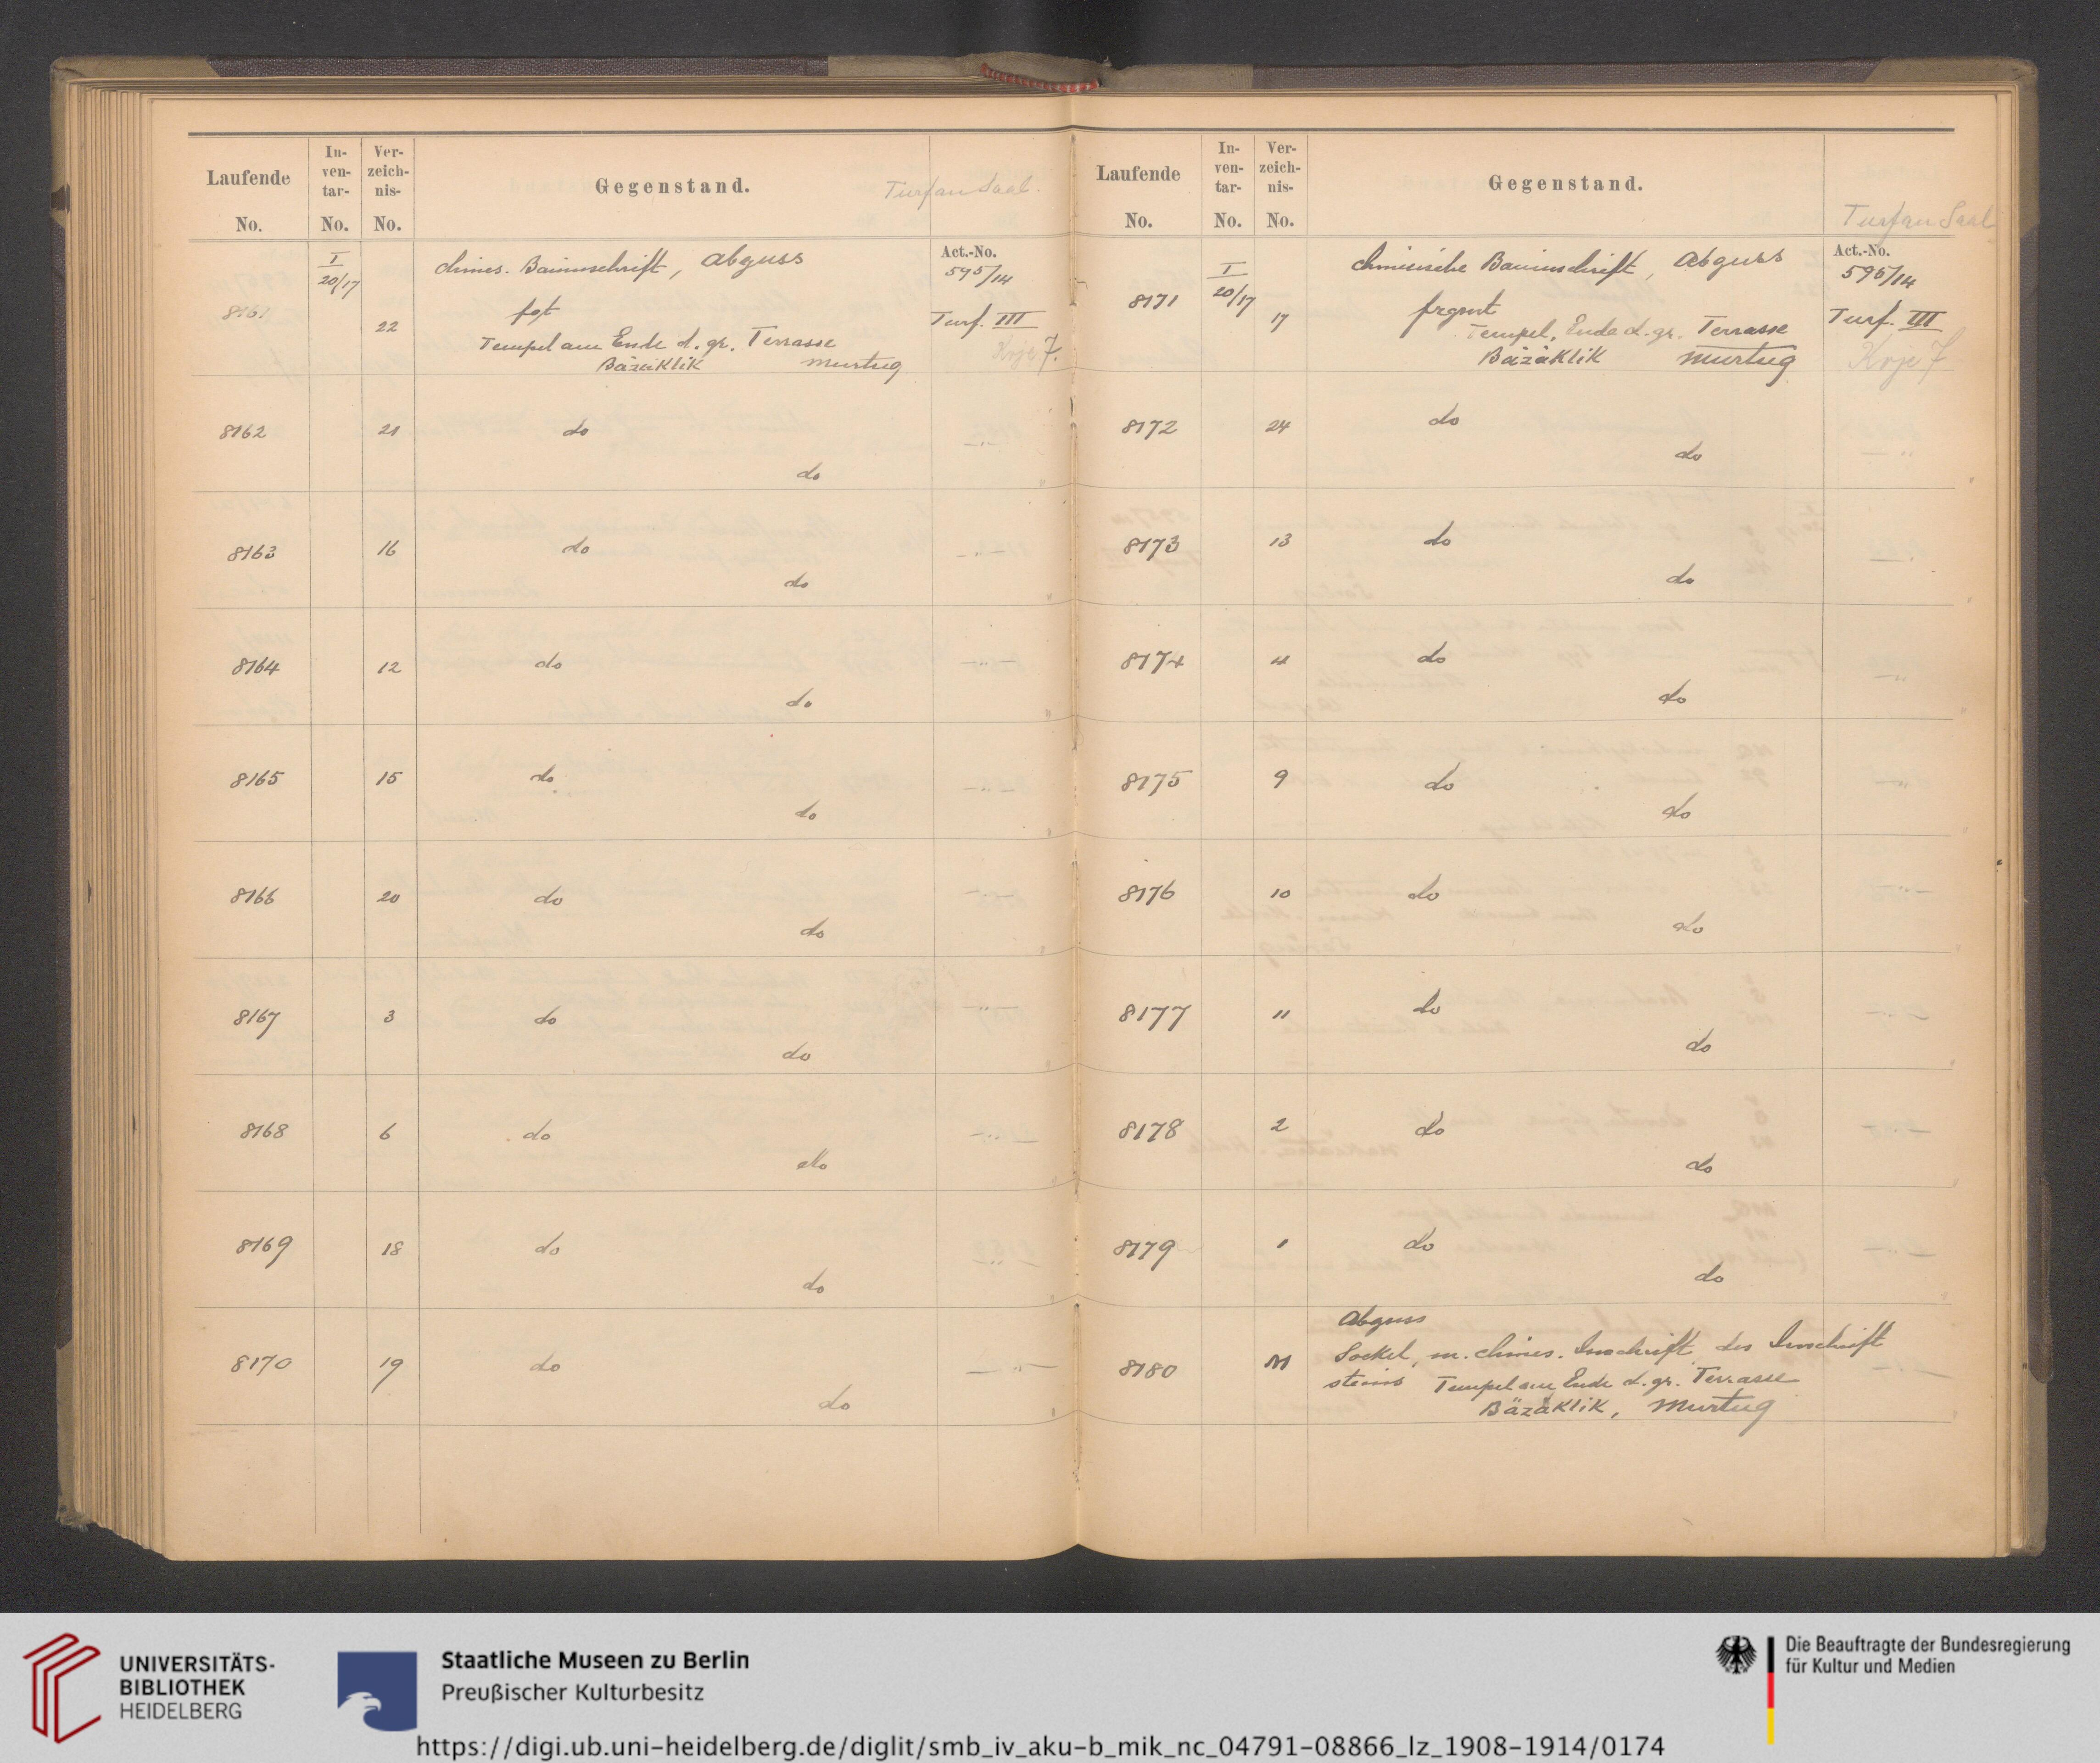 Laufende No.
In-ven-tar-No.
Ver-zeich-nis-No.
Gegenstand.
Turfan Saal.
8161
I
20/17
22
chines. Bauinschrift, Abguss
fgt
Tempel am Ende d. gr. Terrasse
Bäzäklik Murtug
Act.-No.
595/14
Turf. III
Koje 7.
8162 21 do
do
—„—
8163 16 do
do
—„—
8164 12 do
do
—„—
8165 15 do
do
—„—
8166 20 do
do
—„—
8167 3 do
do
—„—
8168 6 do
do
—„—
8169 18 do
do
—„—
8170 19 do
do
—„—
Laufende No.
In-ven-tar-No.
Ver-zeich-nis-No.
Gegenstand.
Turfan Saal
8171
I
20/17
17
chinesische Bauinschrift, Abguss
frgmt
Tempel, Ende d. gr. Terrasse
Bäzäklik Murtug
Act.-No.
595/14
Turf. III
Koje 7
8172 24 do
do
—„—
8173 13 do
do
—„—
8174 do
do
—„—
8175 9 do
do
—„—
8176 10 do
do
—„—
8177 11 do
do
—„—
8178 2 do
do
—„—
8179 1 do
do
—„—
8180
Abguss
Sockel, m. chines. Inschrift, des Inschrift
steins Tempel am Ende d. gr. Terrasse
Bäzäklik, Murtug
—„—
UNIVERSITÄTS-
BIBLIOTHEK
HEIDELBERG
Staatliche Museen zu Berlin
Preußischer Kulturbesitz
Die Beauftragte der Bundesregierung
für Kultur und Medien
https://digi.ub.uni-heidelberg.de/diglit/smb_iv_aku-b_mik_nc_04791-08866_lz_1908-1914/0174